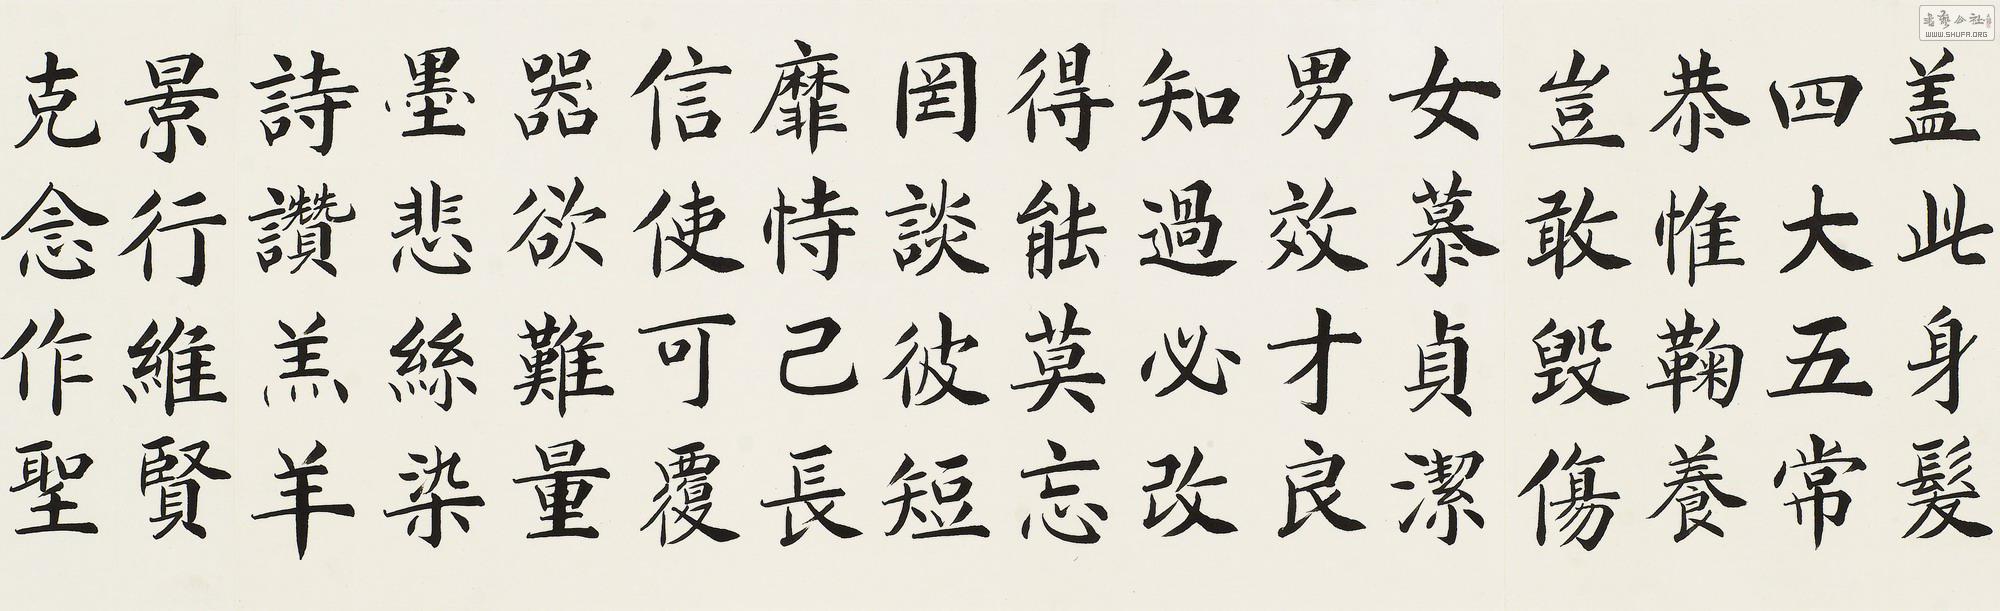 盖此身髮
四大五常
恭惟鞠養
豈敢毀傷
女慕貞潔
男效才良
知過必改
得能莫忘
罔談彼短
靡恃己長
信使可覆
器欲難量
墨悲絲染
詩讚羔羊
景行維賢
克念作聖
书艺公社
WWW.SHUFA.ORG